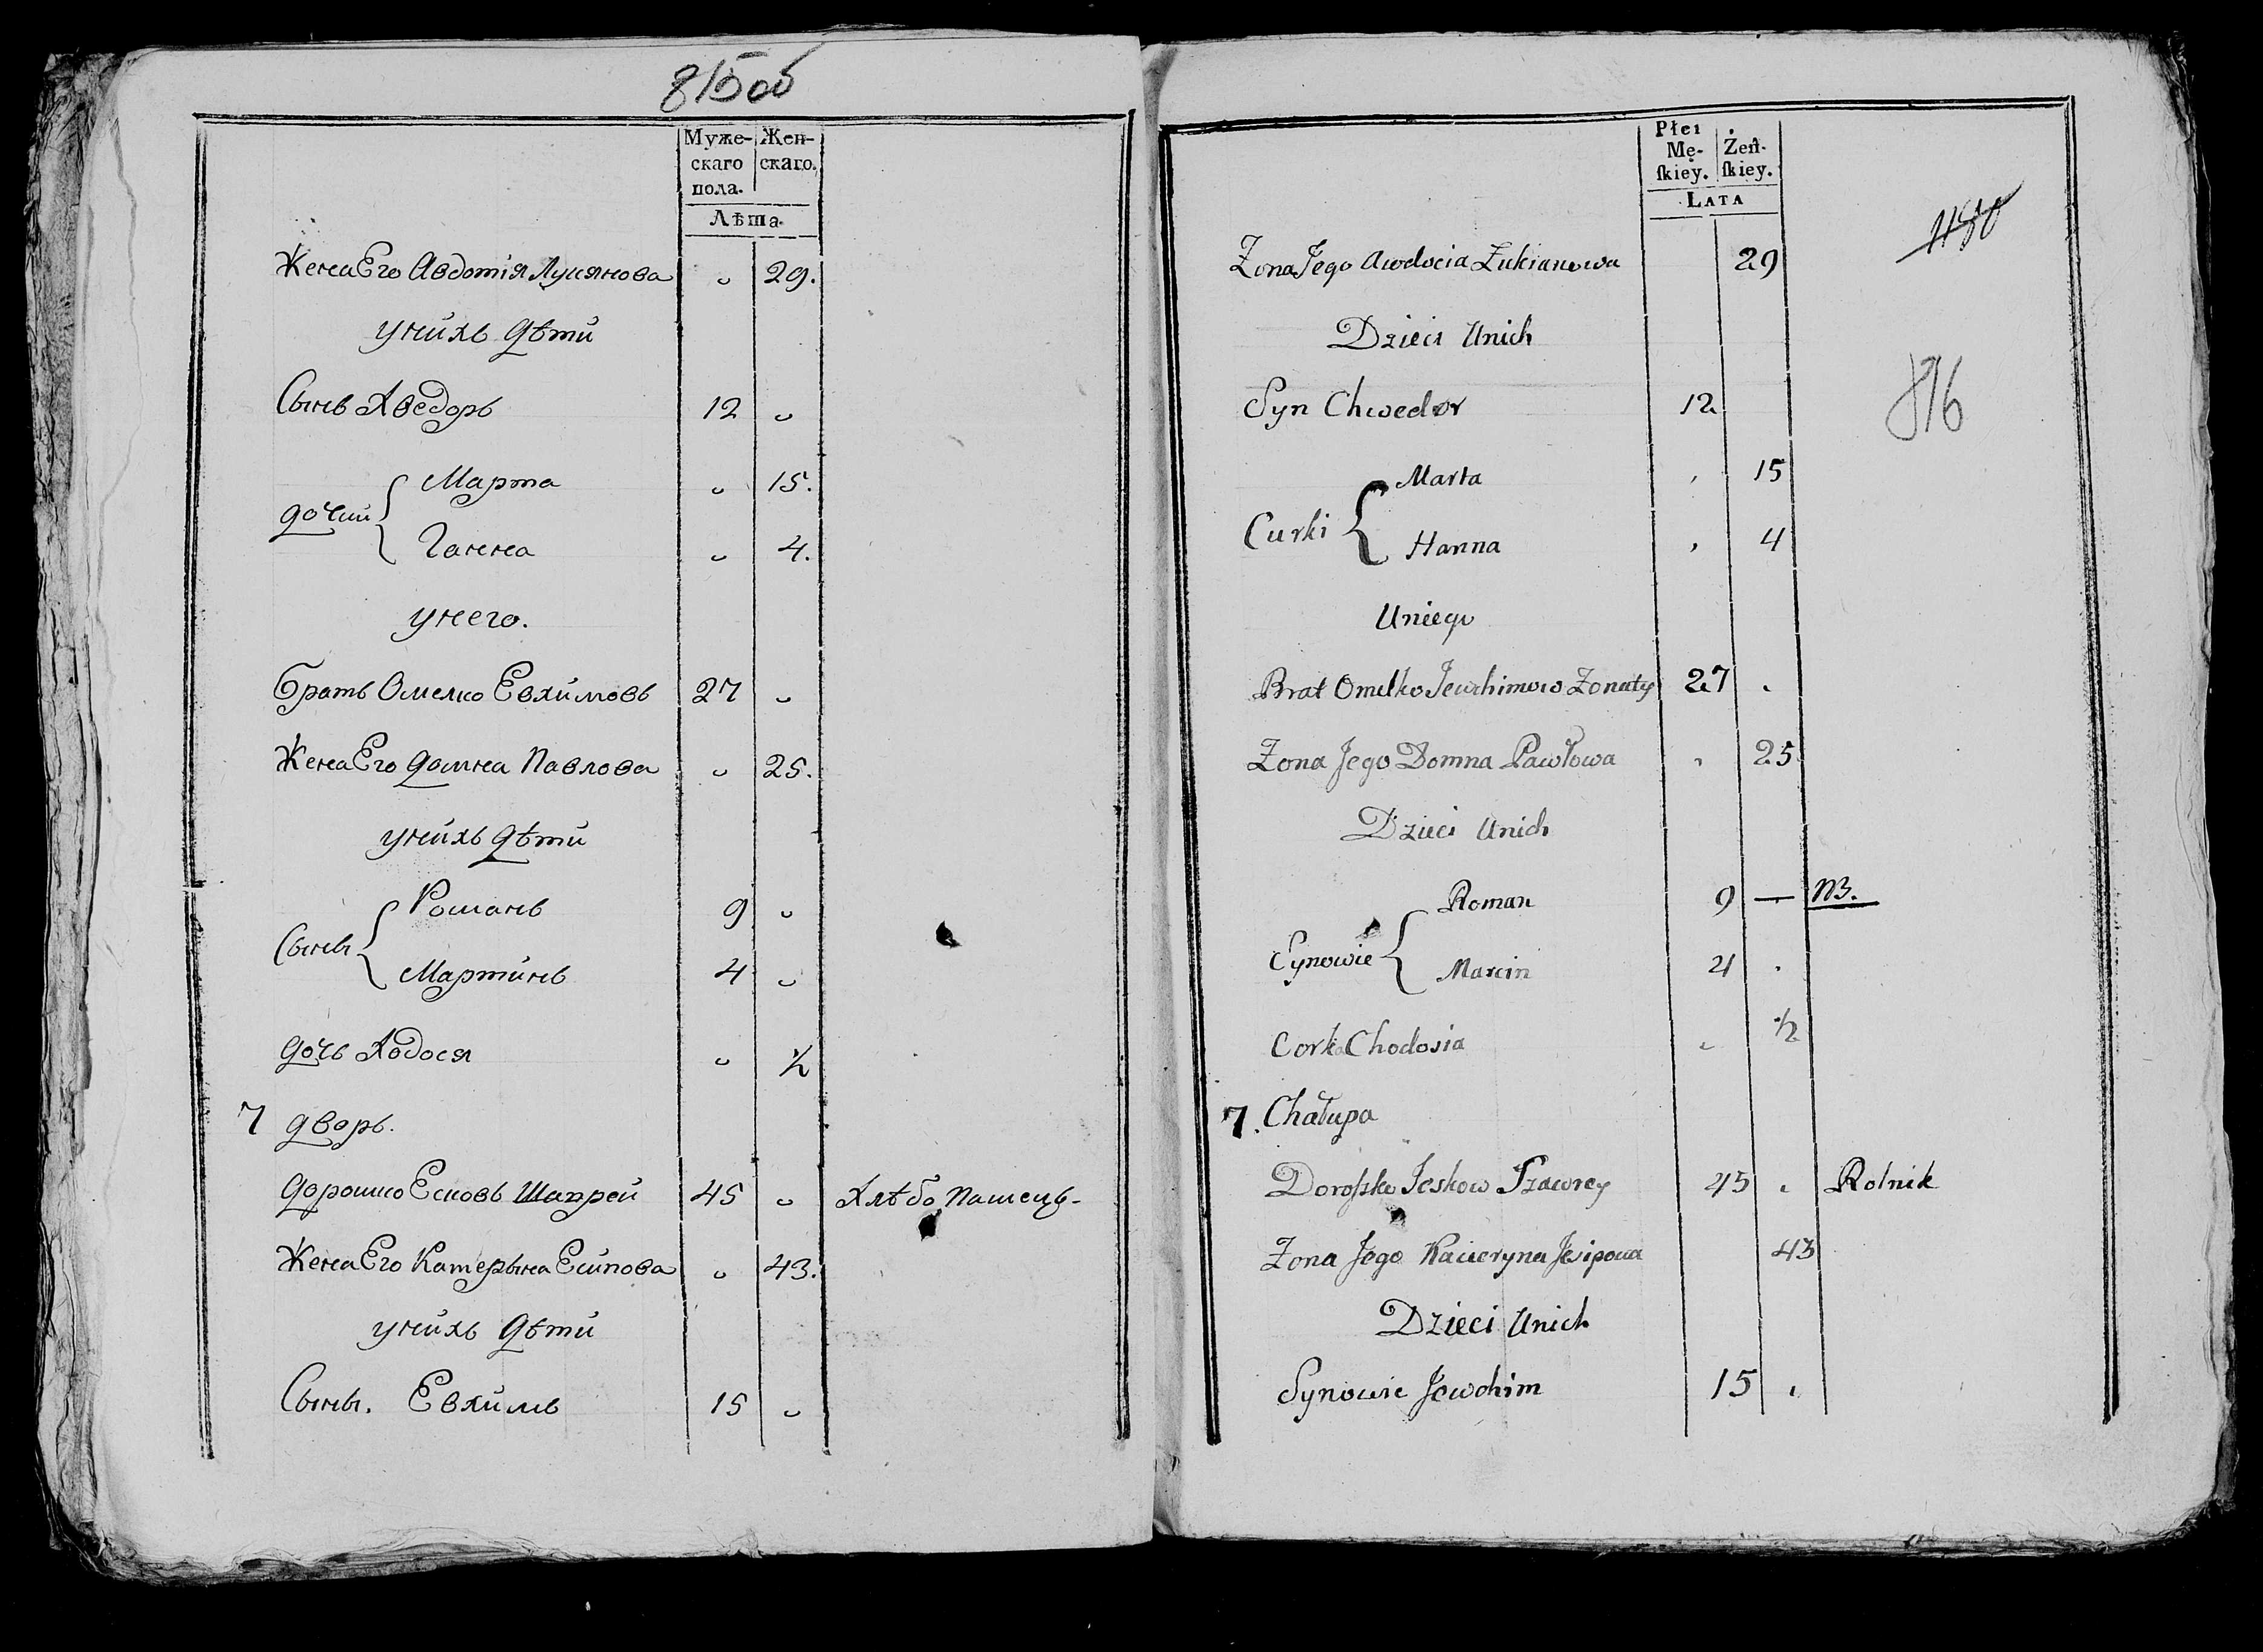 815об
Муже-
скаго
пола.
Жен-
скаго.
Лѣта.
Жена Его Авдотія Лукянова " 29.
унихъ дѣти
Сынъ Хведоръ 12 "
дочки { Марта " 15.
Ганна " 4.
унего.
Братъ Омелко Евхимовъ 27 "
Жена Его домна Павлова " 25.
унихъ дѣти
Сыны { Романъ 9 "
Мартинъ 4 "
дочь Ходося " ½
7 дворъ.
дорошко Есковъ 45 " Хлѣбо Пашецъ-
Жена Его Катерына Есипова " 43.
унихъ дѣти
Сыны. Евхимъ 15 "
Płei
Mę-
ſkiey.
Żeń-
ſkiey.
LATA
1180
816
Zona Jego Awdocia Łukianowa 29
Dzieci Unich
Syn Chwedor 12
Curki { Marta , 15
Hanna , 4
Uniego
Brat Omelko Jewchimow Zonaty 27 .
Zona Jego Domna Pawłowa , 25
Dzieci Unich
Synowie { Roman 9 — NB.
Marcin 4 .
Corka Chodosia " ½
7. Chałupa
Doroſzko Jeskow Szawrey 45 . Rolnik
Zona Jego Kacieryna Jesipowa 43
Dzieci Unich
Synowie Jewchim 15 .